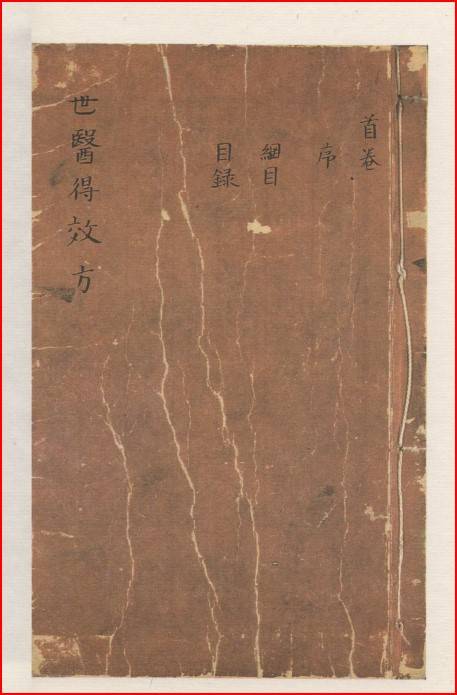 首卷
序
綱目
目録
世醫得效方